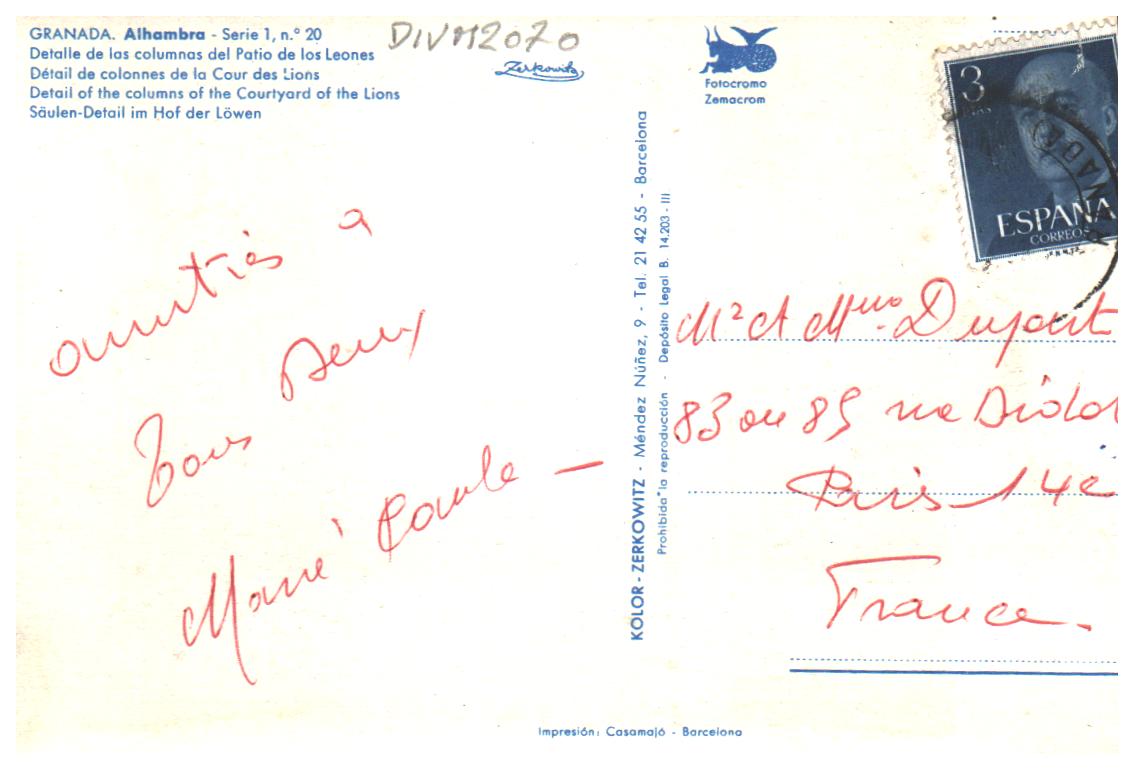 GRANADA. Alhambra - Serie 1, n.° 20
Detalle de las columnas del Patio de los Leones
Détail de colonnes de la Cour des Lions
Detail of the columns of the Courtyard of the Lions
Säulen-Detail im Hof der Löwen
DIVM2070
Zerkowitz
Fotocromo
Zemacrom
3
PTAS
ESPAÑA
CORREOS
amitiés à
Tous deux
Marie Paule —
KOLOR - ZERKOWITZ - Méndez Núñez, 9 - Tel. 21 42 55 - Barcelona
Prohibida la reproducción - Depósito Legal B. 14.203 - III
Mr et Mme Dupont
83 ou 85 rue Didot
Paris 14e
France.
Impresión: Casamajó - Barcelona